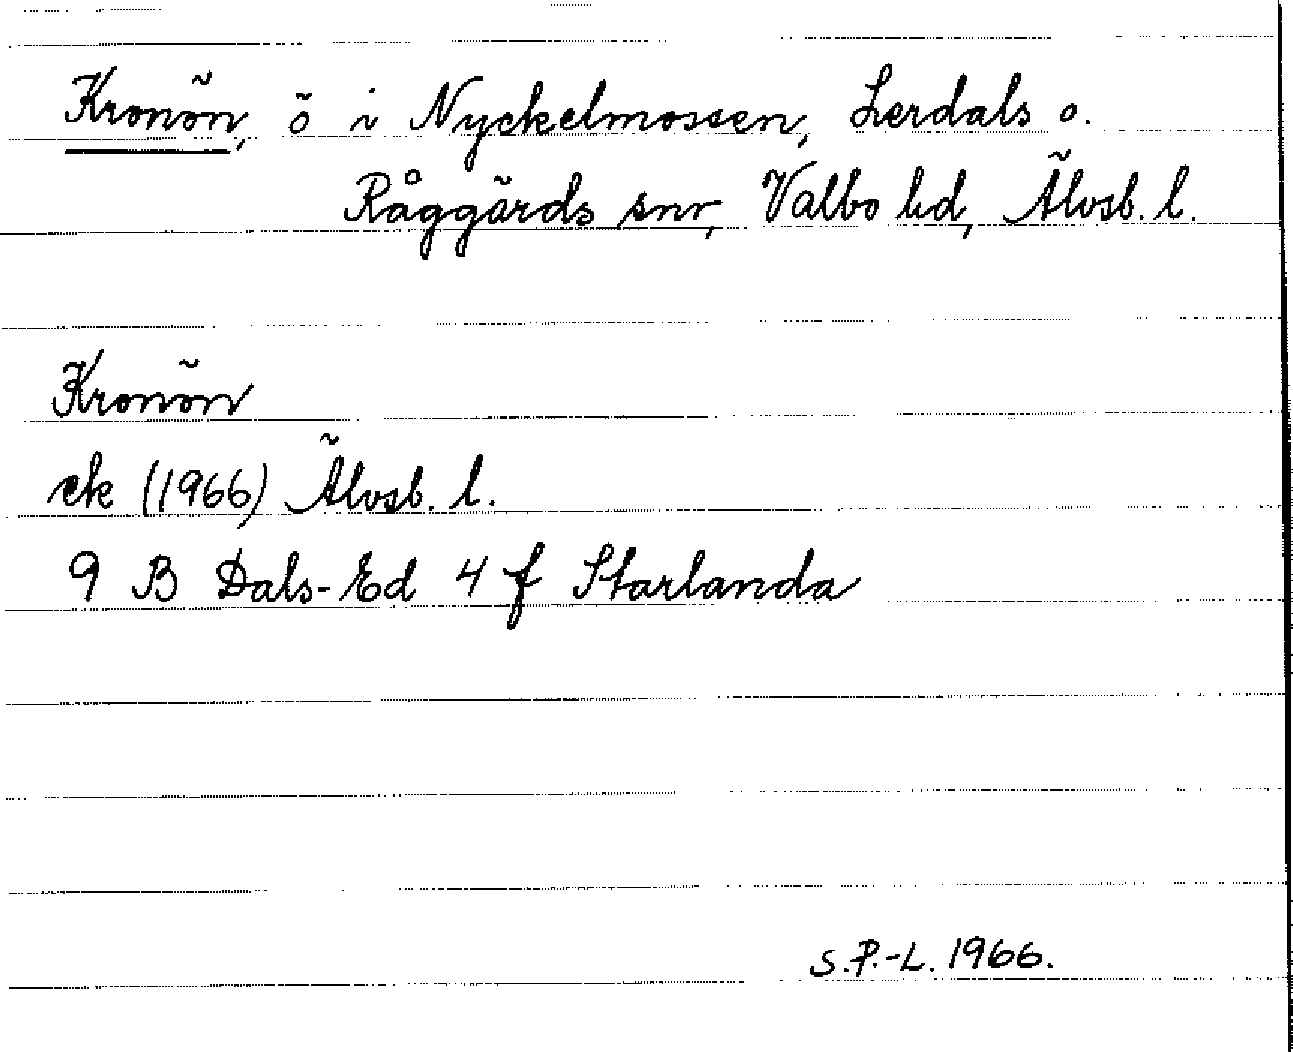 Kronön, ö i Nyckelmossen, Lerdals o.
Råggärds snr, Valbo hd, Älvsb. l.
Kronön
ek (1966) Älvsb. l.
9 B Dals-Ed 4 f Starlanda
S.P.-L. 1966.